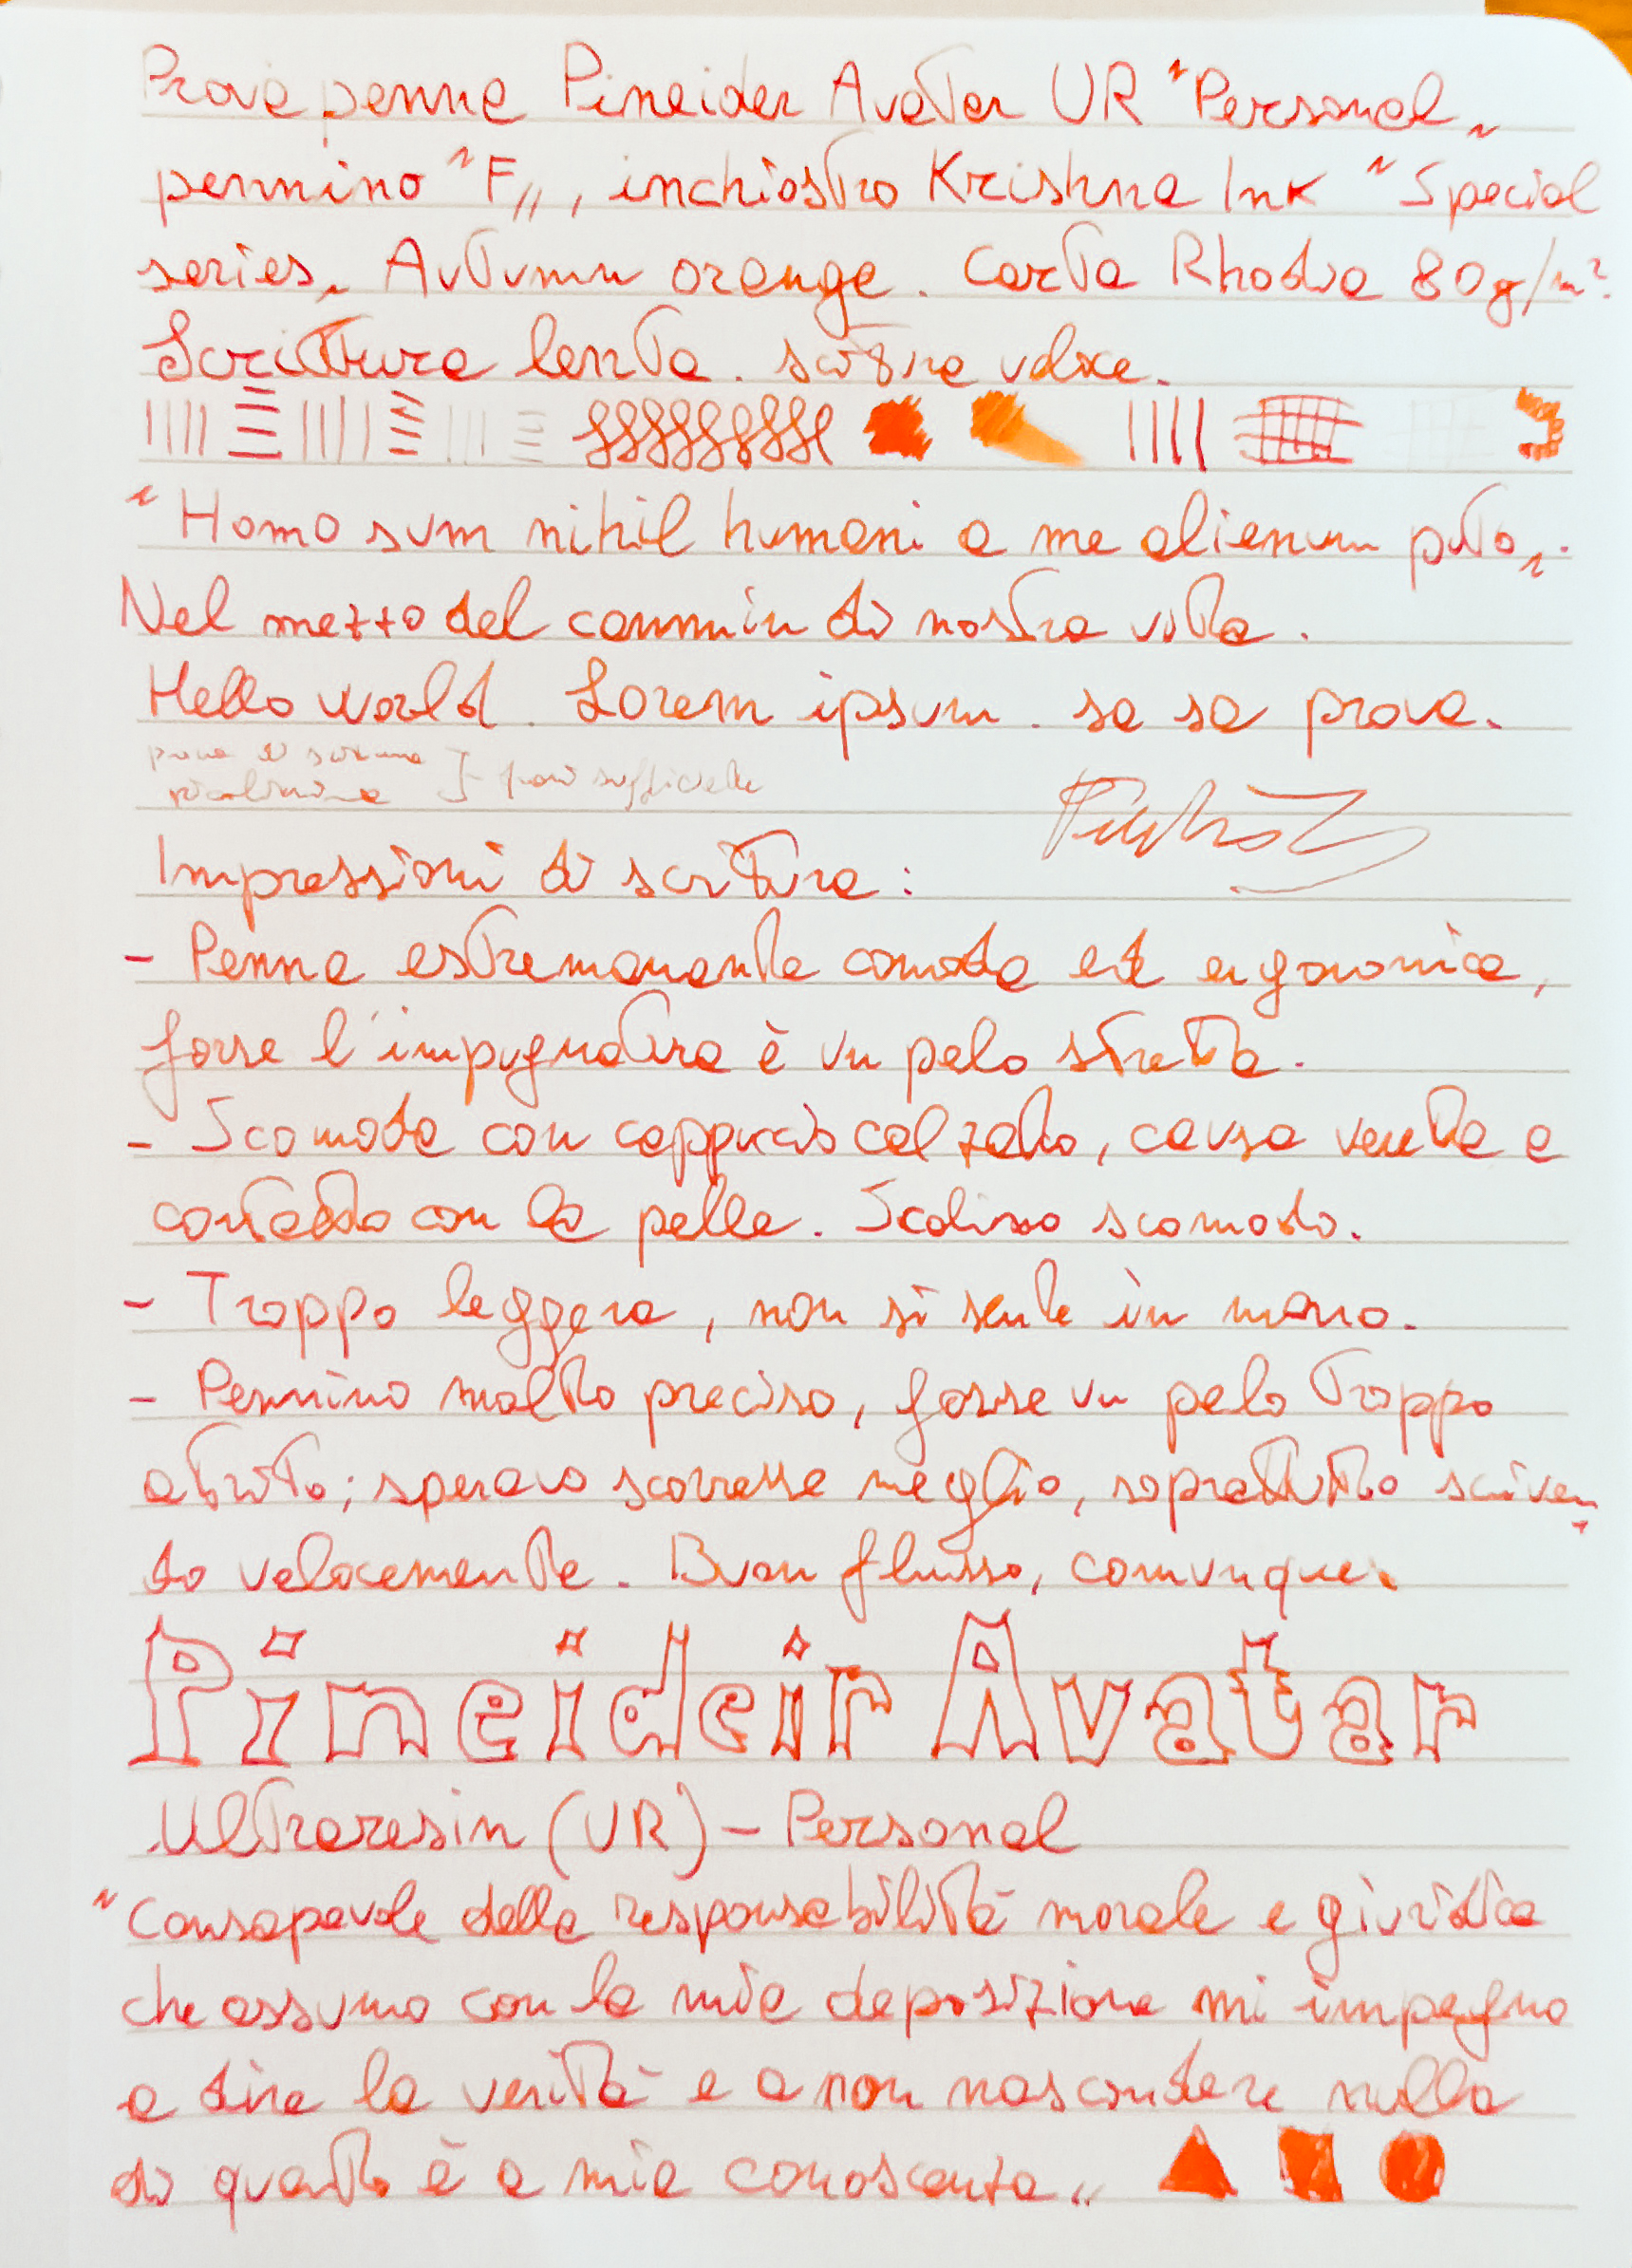 Prova penna Pineider Avatar UR "Personal"
pennino "F", inchiostro Krishna Ink "Special
series" Autumn orange. Carta Rhodia 80g/m².
Scrittura lenta. scrittura veloce.
"Homo sum nihil humani a me alienum puto".
Nel mezzo del cammin di nostra vita.
Hello world. Lorem ipsum. sa sa prova.
prova di scrittura
piccolissima
Impressioni di scrittura:
- Penna estremamente comoda ed ergonomica,
forse l'impugnatura è un pelo stretta.
- Scomoda con cappuccio calzato, causa veretta e
contatto con la pelle. Scalino scomodo.
- Troppo leggera, non si sente in mano.
- Pennino molto preciso, forse un pelo troppo
attrito; speravo scorresse meglio, soprattutto scriven-
do velocemente. Buon flusso, comunque.
Pineideir Avatar
Ultraresin (UR) - Personal
"Consapevole della responsabilità morale e giuridica
che assumo con la mia deposizione mi impegno
a dire la verità e a non nascondere nulla
di quanto è a mia conoscenza"